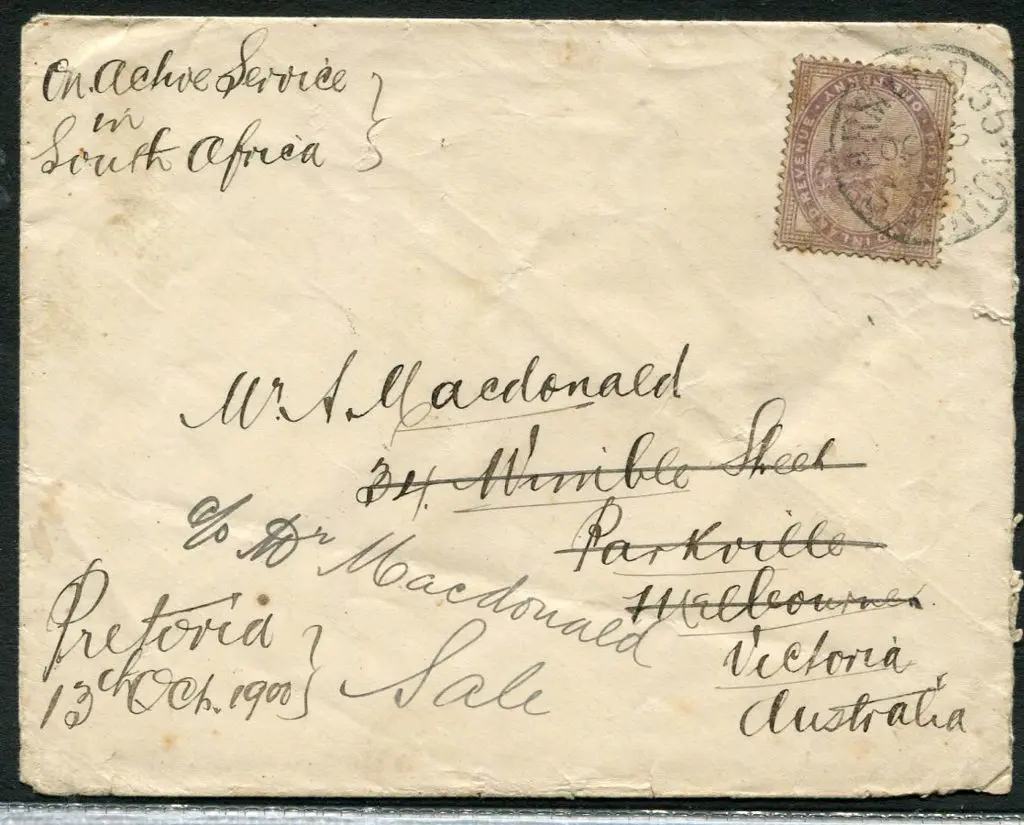 On Active Service
in
South Africa
REVENUE
Mr. A. Macdonald
34. Wimble Street
Parkville
Melbourne
c/o Dr Macdonald
Sale
Victoria
Australia
Pretoria
13th Oct. 1900